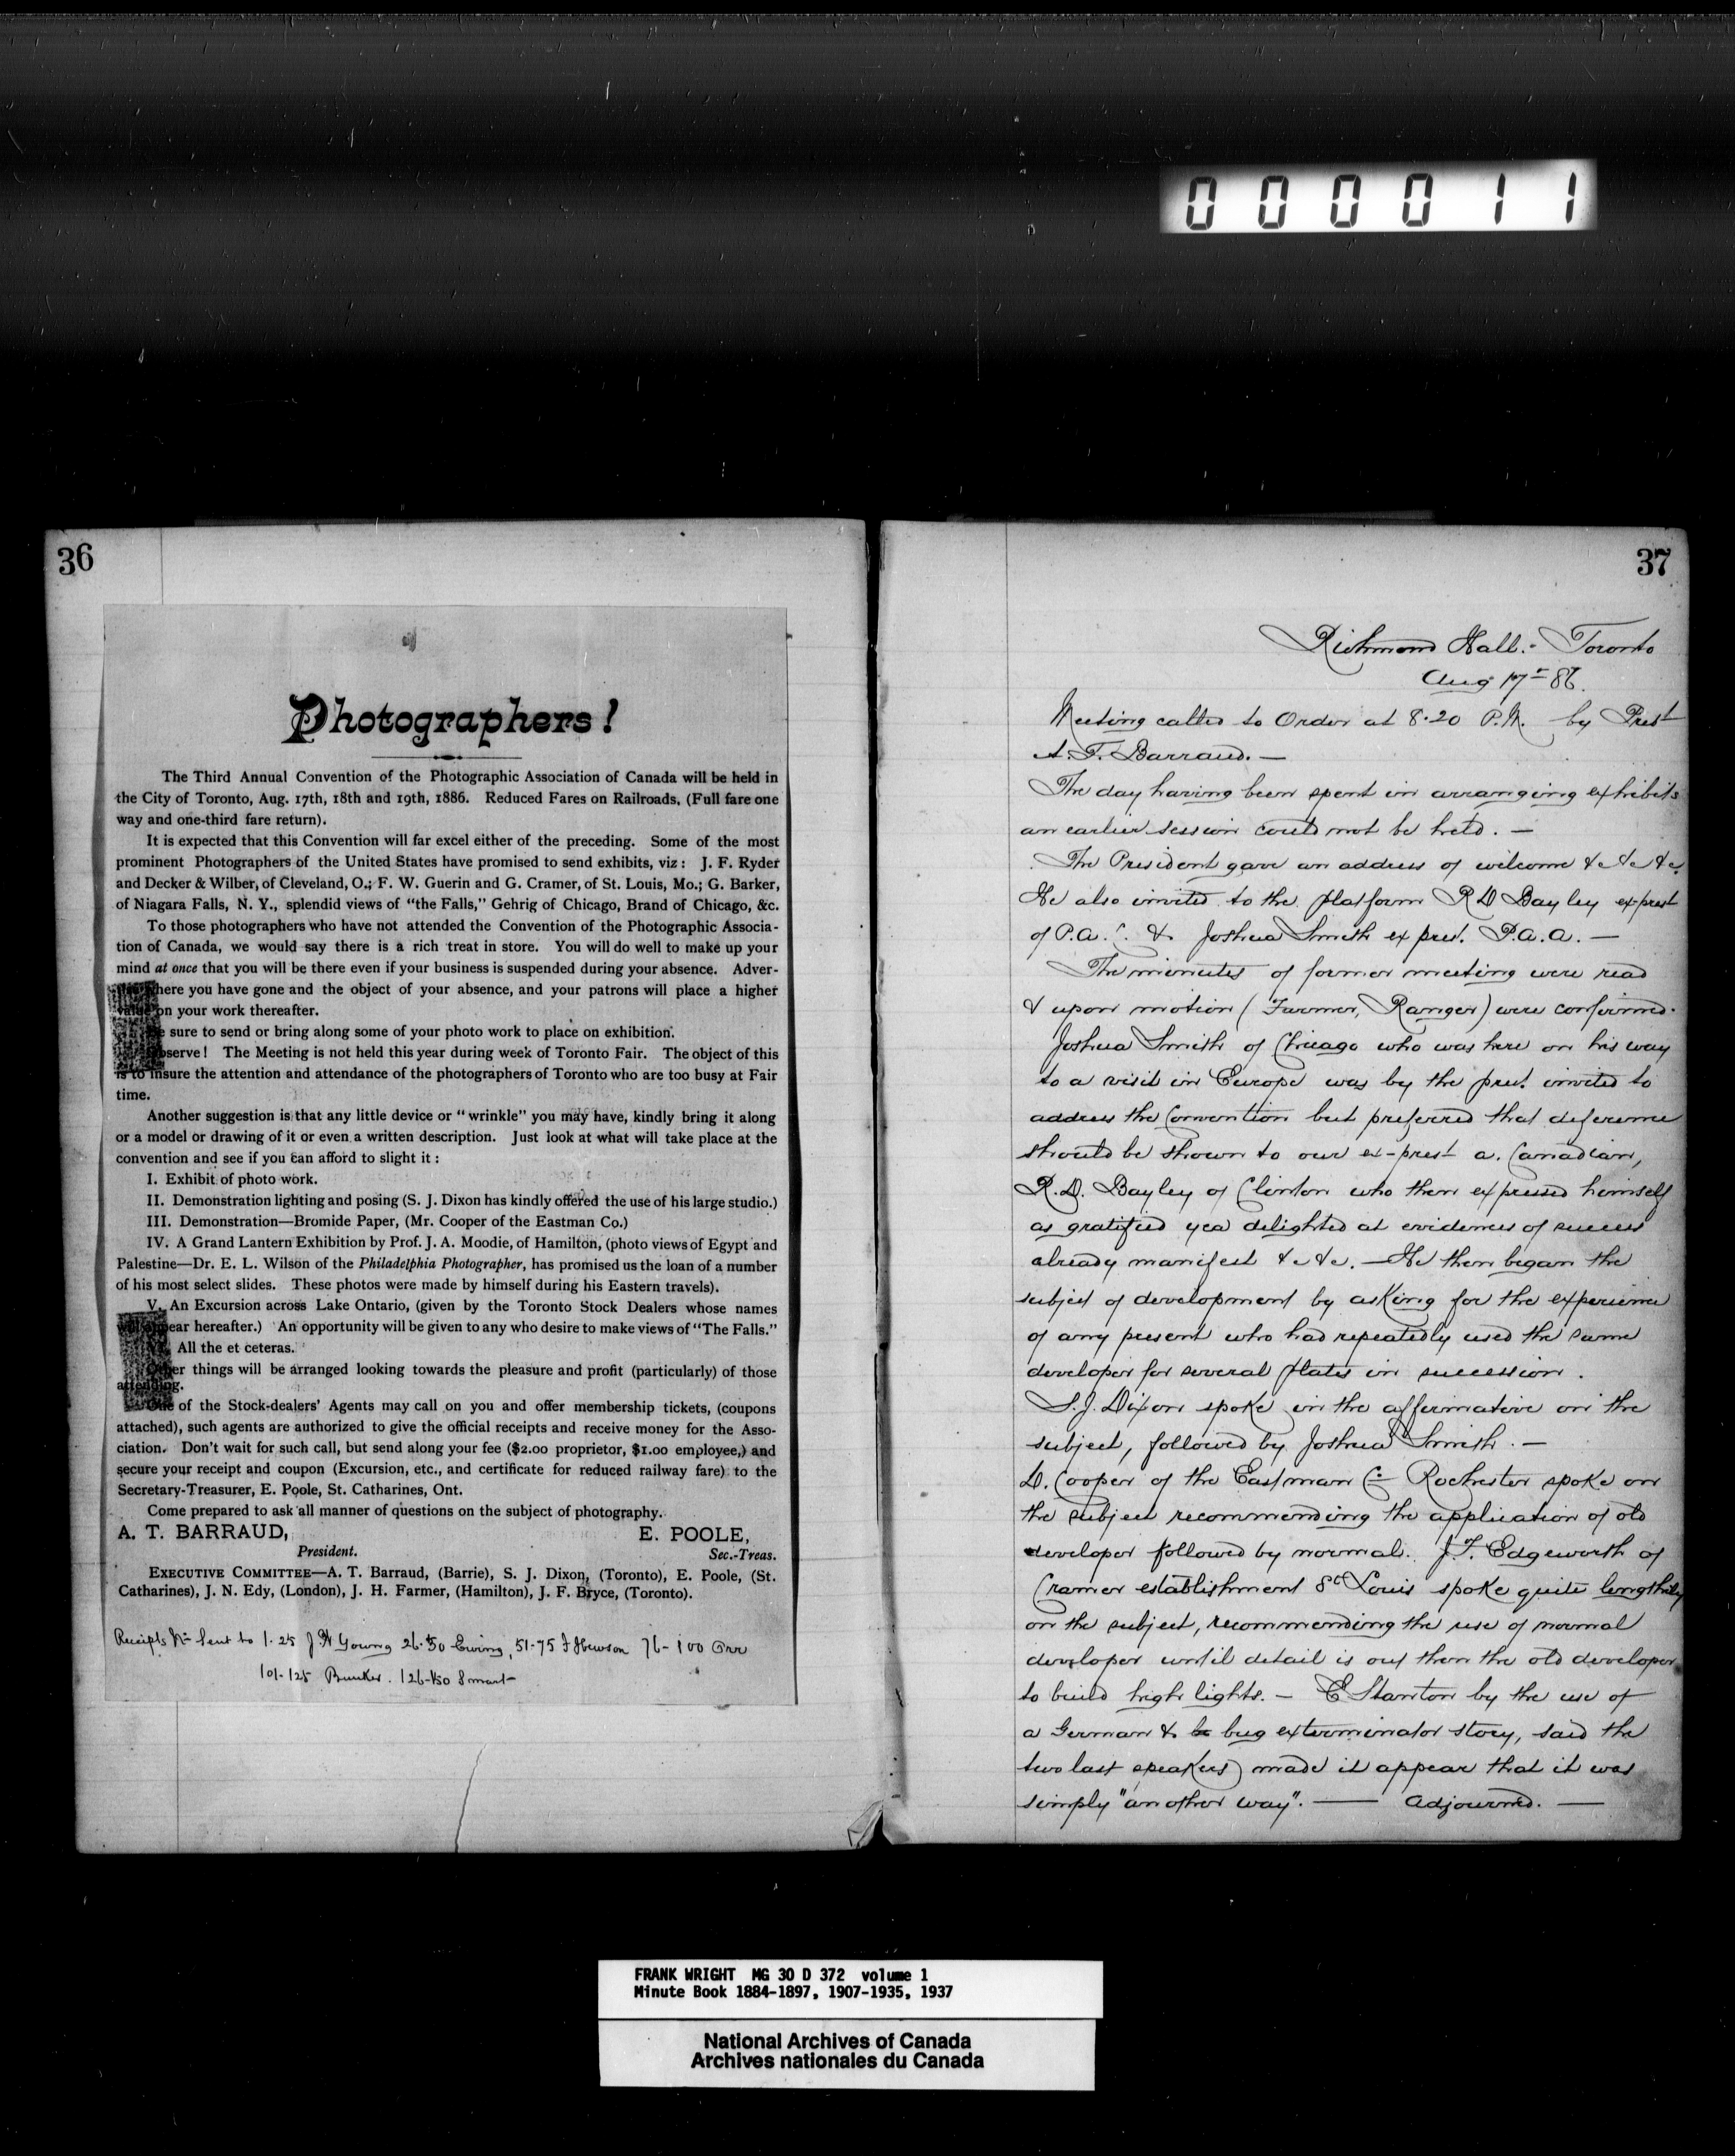 000011
36
Photographers!
The Third Annual Convention of the Photographic Association of Canada will be held in
the City of Toronto, Aug. 17th, 18th and 19th, 1886. Reduced Fares on Railroads, (Full fare one
way and one-third fare return).
It is expected that this Convention will far excel either of the preceding. Some of the most
prominent Photographers of the United States have promised to send exhibits, viz: J. F. Ryder
and Decker & Wilber, of Cleveland, O.; F. W. Guerin and G. Cramer, of St. Louis, Mo.; G. Barker,
of Niagara Falls, N. Y., splendid views of "the Falls," Gehrig of Chicago, Brand of Chicago, &c.
To those photographers who have not attended the Convention of the Photographic Associa-
tion of Canada, we would say there is a rich treat in store. You will do well to make up your
mind at once that you will be there even if your business is suspended during your absence. Adver-
where you have gone and the object of your absence, and your patrons will place a higher
value on your work thereafter.
Be sure to send or bring along some of your photo work to place on exhibition.
Observe! The Meeting is not held this year during week of Toronto Fair. The object of this
is to insure the attention and attendance of the photographers of Toronto who are too busy at Fair
time.
Another suggestion is that any little device or "wrinkle" you may have, kindly bring it along
or a model or drawing of it or even a written description. Just look at what will take place at the
convention and see if you can afford to slight it:
I. Exhibit of photo work.
II. Demonstration lighting and posing (S. J. Dixon has kindly offered the use of his large studio.)
III. Demonstration—Bromide Paper, (Mr. Cooper of the Eastman Co.)
IV. A Grand Lantern Exhibition by Prof. J. A. Moodie, of Hamilton, (photo views of Egypt and
Palestine—Dr. E. L. Wilson of the Philadelphia Photographer, has promised us the loan of a number
of his most select slides. These photos were made by himself during his Eastern travels).
V. An Excursion across Lake Ontario, (given by the Toronto Stock Dealers whose names
will appear hereafter.) An opportunity will be given to any who desire to make views of "The Falls."
VI. All the et ceteras.
Other things will be arranged looking towards the pleasure and profit (particularly) of those
attending.
One of the Stock-dealers' Agents may call on you and offer membership tickets, (coupons
attached), such agents are authorized to give the official receipts and receive money for the Asso-
ciation. Don't wait for such call, but send along your fee ($2.00 proprietor, $1.00 employee,) and
secure your receipt and coupon (Excursion, etc., and certificate for reduced railway fare) to the
Secretary-Treasurer, E. Poole, St. Catharines, Ont.
Come prepared to ask all manner of questions on the subject of photography.
A. T. BARRAUD, E. POOLE,
President. Sec.-Treas.
EXECUTIVE COMMITTEE—A. T. Barraud, (Barrie), S. J. Dixon, (Toronto), E. Poole, (St.
Catharines), J. N. Edy, (London), J. H. Farmer, (Hamilton), J. F. Bryce, (Toronto).
Receipts No Sent to 1-25 J H Young 26-50 Ewing, 51-75 Hewson 76-100 Orr
101-125 Bunker. 126-150 Smart
37
Richmond Hall.- Toronto
Aug 17th 86.
Meeting called to Order at 8.20 P.M. by Prest
A. T. Barraud. —
The day having been spent in arranging exhibits
an earlier session could not be held. —
The President gave an address of welcome &c &c &c.
He also invited to the platform R D Bayley ex-prest
of P.A.C. & Joshua Smith ex prest. P.A.A. —
The minutes of former meeting were read
& upon motion (Farmer, Ranger) were confirmed.
Joshua Smith of Chicago who was here on his way
to a visit in Europe was by the prest. invited to
address the Convention but preferred that deference
should be shown to our ex-prest a. Canadian,
R. D. Bayley of Clinton who then expressed himself
as gratified yea delighted at evidences of success
already manifest &c &c. — He then began the
subject of development by asking for the experience
of any present who had repeatedly used the same
developer for several plates in succession.
S. J. Dixon spoke in the affirmative on the
subject, followed by Joshua Smith. —
D. Cooper of the Eastman Co Rochester spoke on
the subject recommending the application of old
developer followed by normal. J. F. Edgeworth of
Cramer establishment St Louis spoke quite lengthily
on the subject, recommending the use of normal
developer until detail is out then the old developer
to build high lights. — E Stanton by the use of
a German & bug exterminator story, said the
two last speakers made it appear that it was
simply "another way". — Adjourned. —
FRANK WRIGHT MG 30 D 372 volume 1
Minute Book 1884-1897, 1907-1935, 1937
National Archives of Canada
Archives nationales du Canada